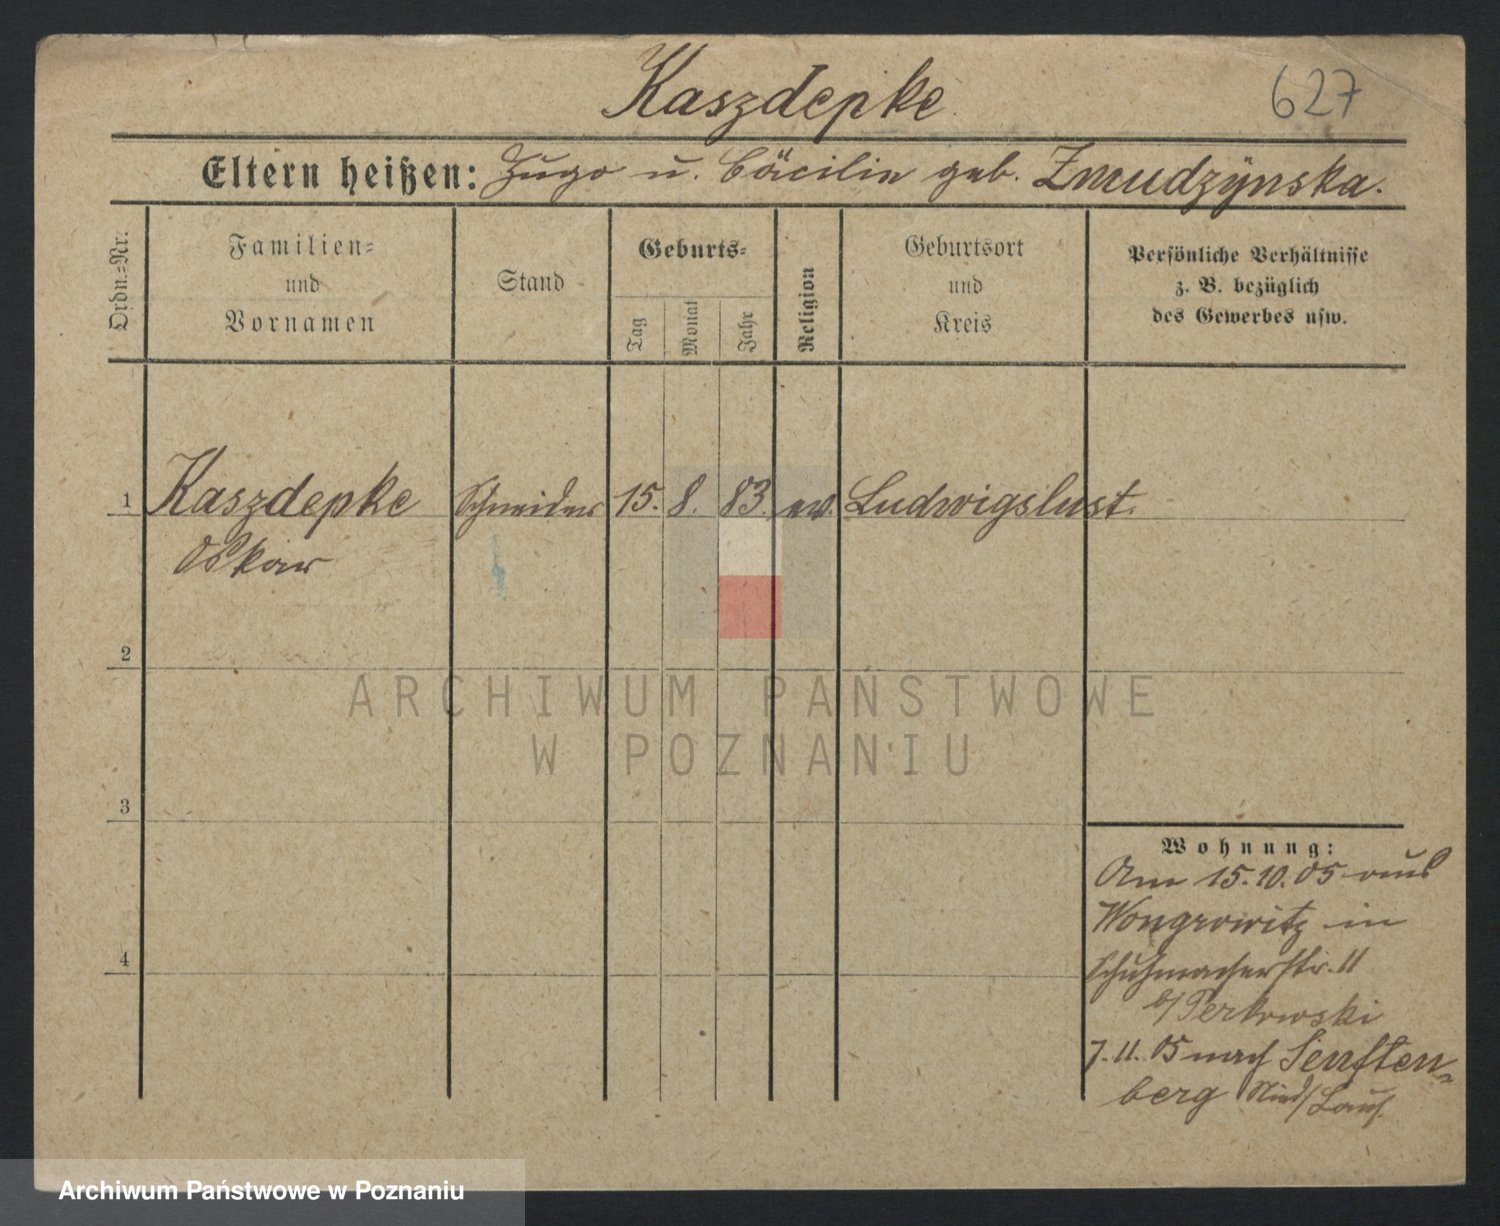 Kaszdepke
627
Eltern heißen: Hugo u. Cäcilie geb. Zmudzÿnska.
Ordn.=Nr.
Familien=
und
Vornamen
Stand
Geburts=
Tag
Monat
Jahr
Religion
Geburtsort
und
Kreis
Persönliche Verhältnisse
z. B. bezüglich
des Gewerbes usw.
1 Kaszdepke Schneider 15. 8. 83. ev. Ludwigslust.
Oskar
2
ARCHIWUM PAŃSTWOWE
W POZNANIU
3
Wohnung:
Am 15.10.05 aus
Wongrowitz in
Schuhmacherstr. 11
b/ Perkowski
4
7.11.05 nach Senften=
berg Nied/Laus.
Archiwum Państwowe w Poznaniu